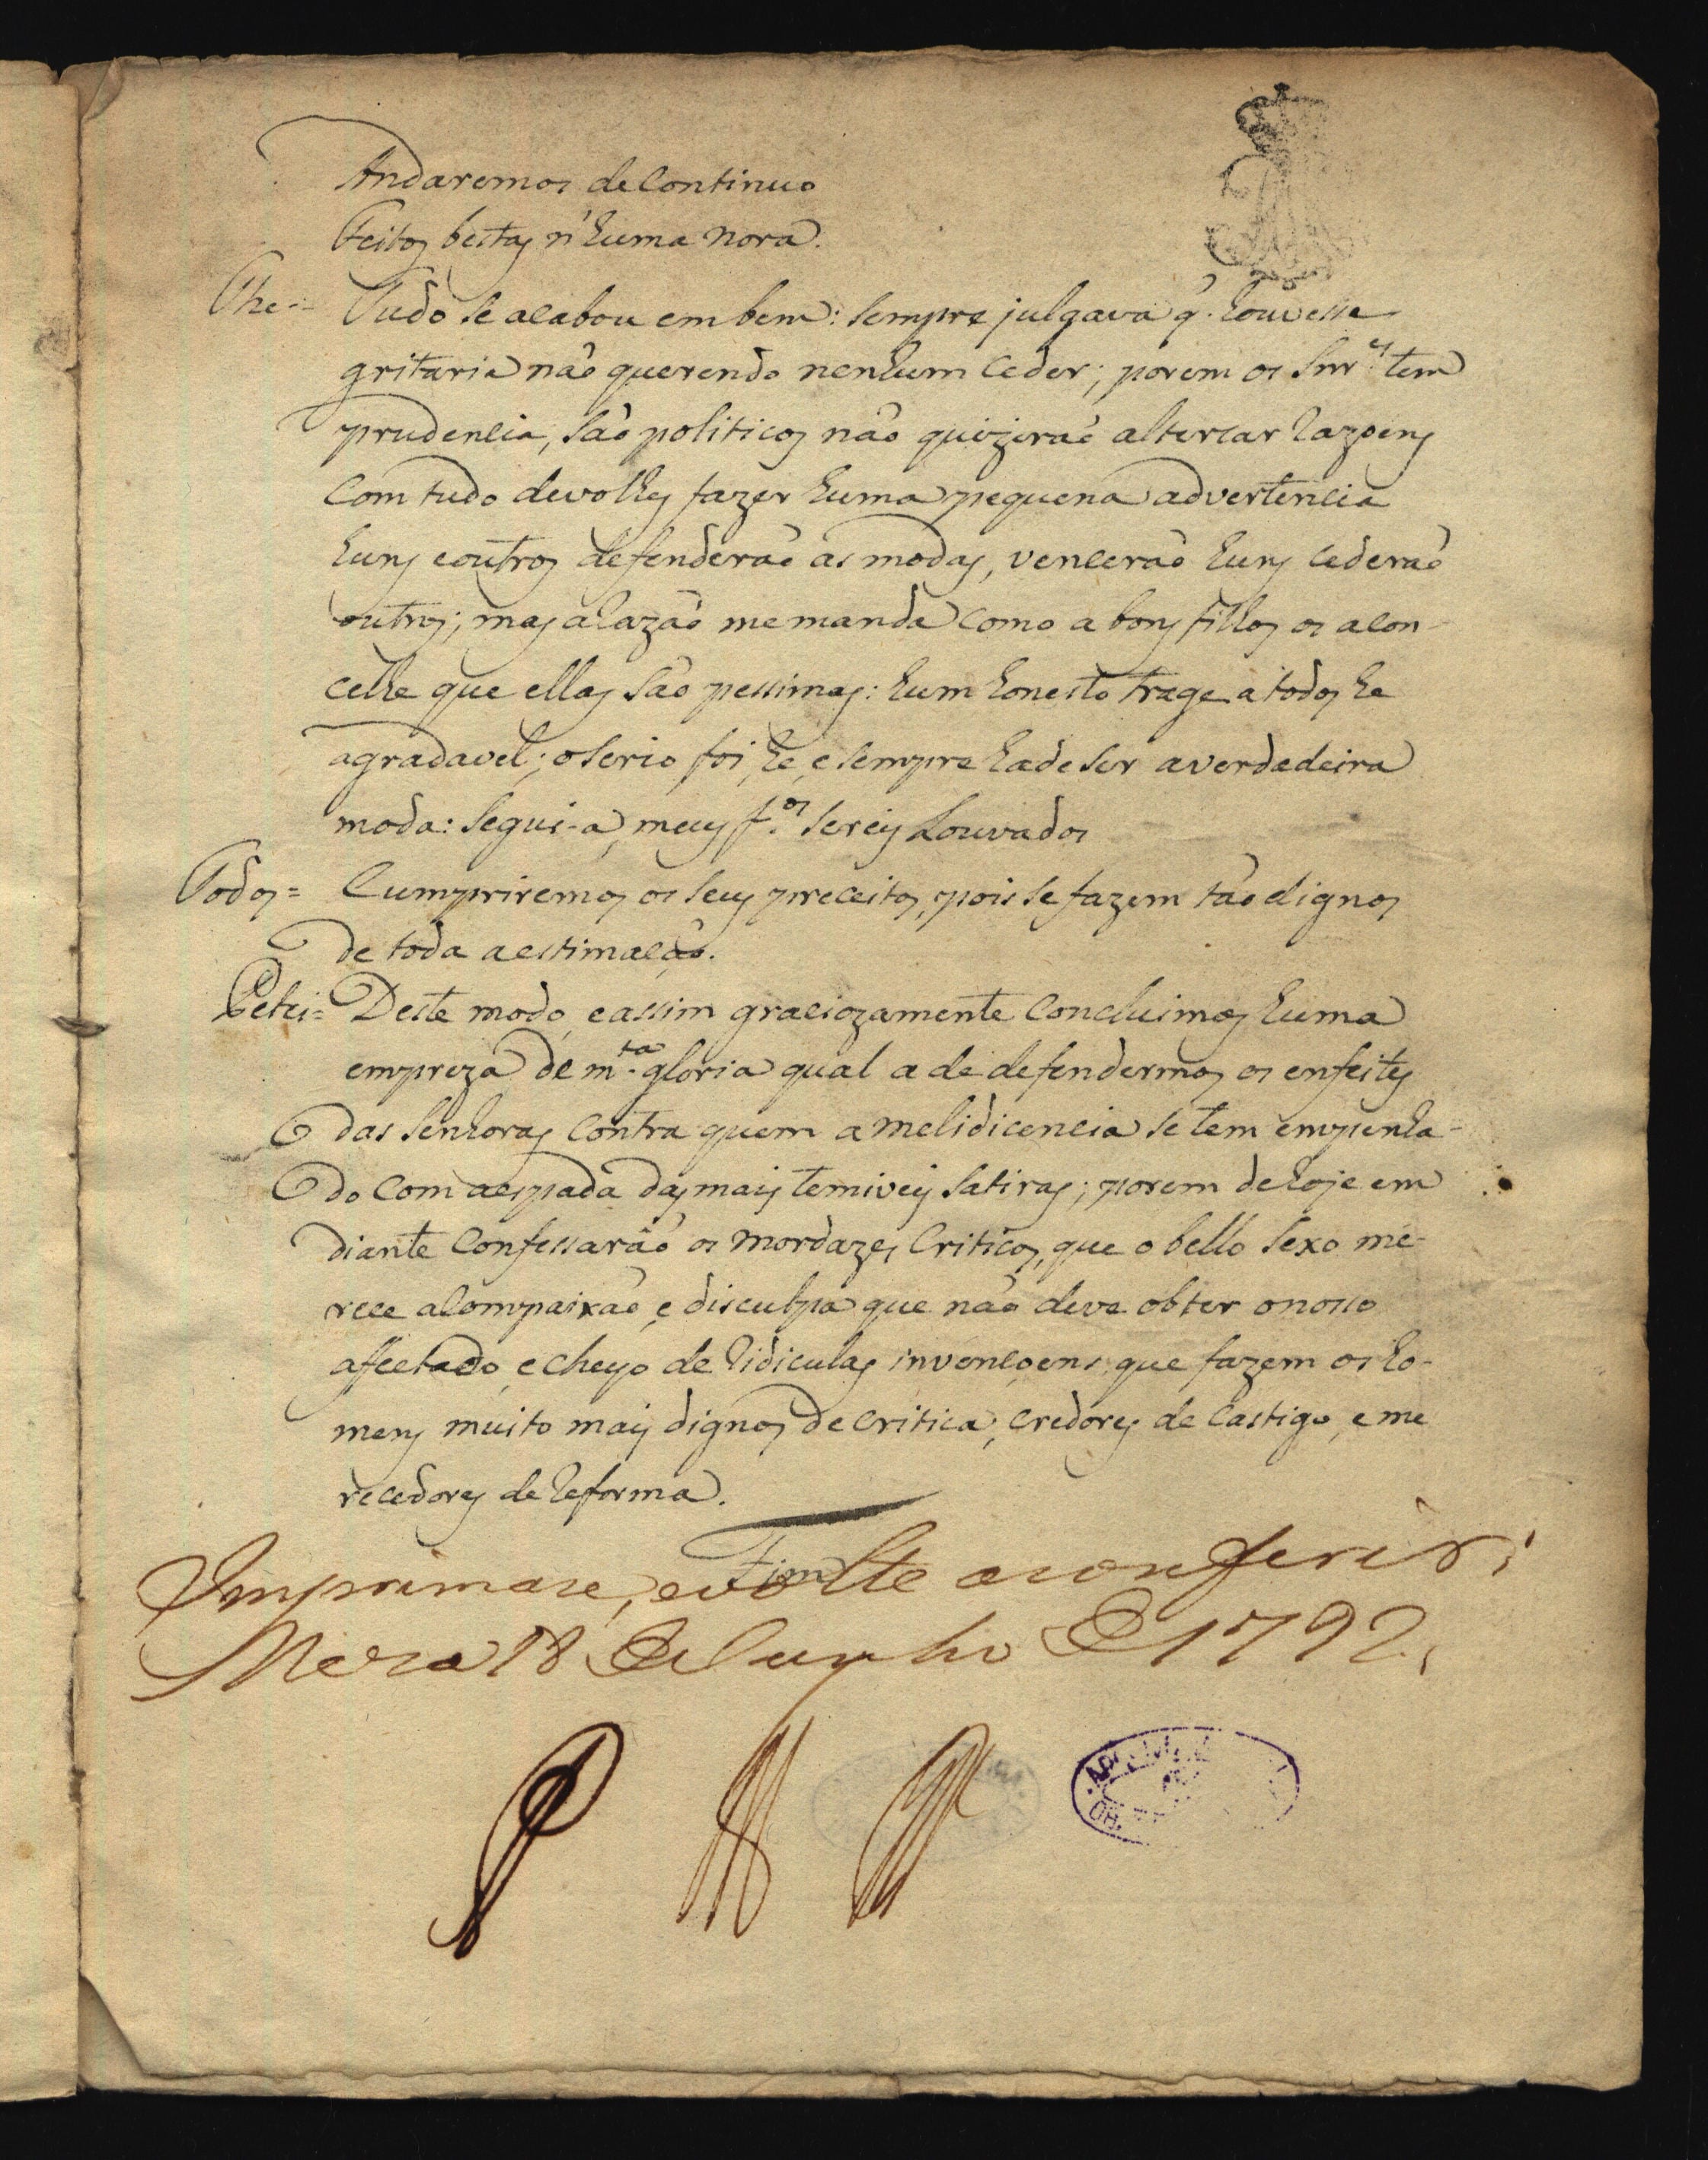 Andaremos de continuo
Feitos bestas n'huma nora.
The= Tudo se acabou em bem: sempre julgava q. houvesse
gritaria não querendo nenhum ceder; porem os Snr.es tem
prudencia, são politicos não quizerão altercar razoens
Com tudo devolhes fazer huma pequena advertencia
huns eoutros defenderão as modas, vencerão huns cederão
outros; mas a razão me manda como a bons filhos os acon-
celhe que ellas são pessimas: hum honesto trage a todos he
agradavel; o serio foi, he, e sempre hade ser a verdadeira
moda: segui-a, meus f.os sereis Louvados
Todos= Cumpriremos os seus preceitos, pois se fazem tão dignos
de toda a estimação.
Petri= Deste modo, e assim graciozamente concluimos huma
empreza de m.ta gloria qual a de defendermos os enfeites
das Senhoras contra quem a melidicencia se tem empenha-
do com a espada das mais temiveis satiras; porem de hoje em
diante confessarão os mordazes Criticos, que o bello sexo me-
rece a compaixão, e disculpa que não deve obter o nosso
afectado, e cheyo de ridiculas invençoens que fazem os ho-
mens muito mais dignos de critica, credores de castigo, e me
recedores de reforma.
Fim
Imprimase, evolte aconferir;
Meza 18 de Junho de 1792.